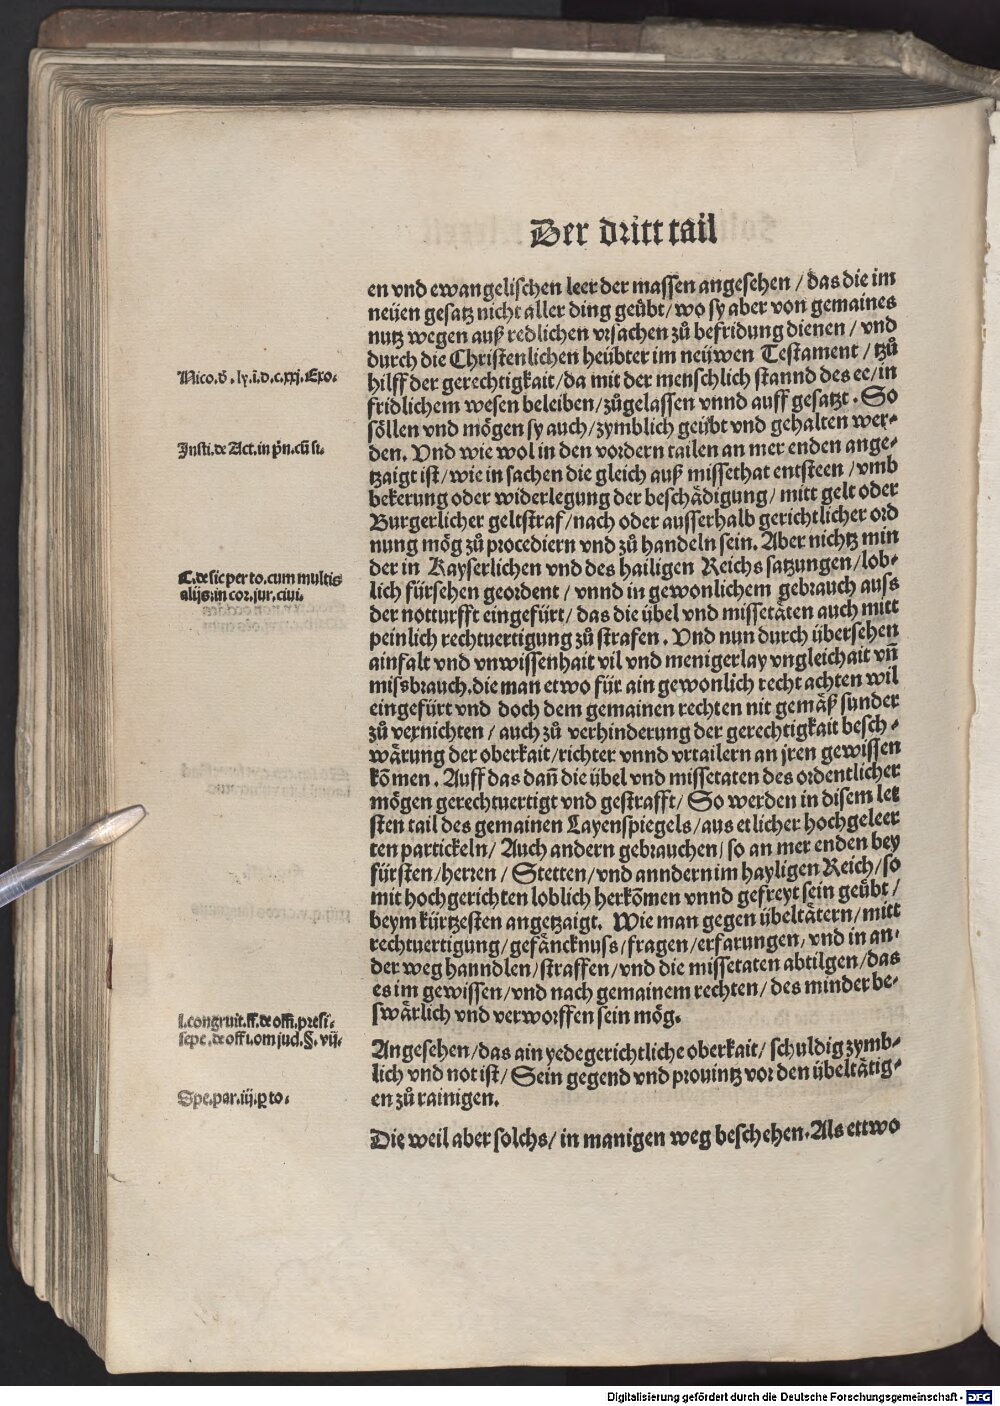 Der dritt tail
en vnd ewangelischen leer der massen angesehen / das die im
neüen gesatz nicht aller ding geübt / wo sy aber von gemaines
nutz wegen auß redlichen vrsachen zů befridung dienen / vnd
durch die Christenlichen heübter im neüwen Testament / tzů
hilff der gerechtigkait / da mit der menschlich stannd des ee / in
fridlichem wesen beleiben / zůgelassen vnnd auff gesatzt. So
söllen vnd mögen sy auch / zymblich geübt vnd gehalten wer⸗
den. Vnd wie wol in den vordern tailen an mer enden ange⸗
tzaigt ist / wie in sachen die gleich auß missethat entsteen / vmb
bekerung oder widerlegung der beschädigung / mitt gelt oder
Burgerlicher geltstraf / nach oder ausserhalb gerichtlicher ord
nung mög zů procediern vnd zů handeln sein. Aber nichtz min
der in Kayserlichen vnd des hailigen Reichs satzungen / lob⸗
lich fürsehen geordent / vnnd in gewonlichem gebrauch auss
der notturfft eingefürt / das die übel vnd missetäten auch mitt
peinlich rechtuertigung zů strafen. Vnd nun durch übersehen
ainfalt vnd vnwissenhait vil vnd menigerlay vngleichait vñ
missbrauch. die man etwo für ain gewonlich recht achten wil
eingefürt vnd doch dem gemainen rechten nit gemäß sunder
zů vernichten / auch zů verhinderung der gerechtigkait besch⸗
wärung der oberkait / richter vnnd vrtailern an jren gewissen
kömen. Auff das dañ die übel vnd missetaten des ordentlicher
mögen gerechtuertigt vnd gestrafft / So werden in disem let
sten tail des gemainen Layenspiegels / aus etlicher hochgeleer
ten partickeln / Auch andern gebrauchen / so an mer enden bey
fürsten / herren / Stetten / vnd anndern im hayligen Reich / so
mit hochgerichten loblich herkömen vnnd gefreyt sein geübt /
beym kürtzesten angetzaigt. Wie man gegen übeltätern / mitt
rechtuertigung / gefäncknuss / fragen / erfarungen, vnd in an⸗
der weg hanndlen / straffen / vnd die missetaten abtilgen / das
es im gewissen / vnd nach gemainem rechten / des minder be⸗
swärlich vnd verworffen sein mög.
Angesehen / das ain yede gerichtliche oberkait / schuldig zymb⸗
lich vnd not ist / Sein gegend vnd prouintz vor den übeltätig⸗
en zů rainigen.
Die weil aber solchs / in manigen weg beschehen. Als ettwo
Nico. d̃. ly. ī. d. c. xxj. Exo.
Insti. de Act. in p̃n. cũ si.
C. de sic per to. cum multis
alijs in cor. jur. ciui.
l. congruit. ff. de offi. presi.
sepe. de offi. om jud. §. vij.
Spe. par. iij. p to.
Digitalisierung gefördert durch die Deutsche Forschungsgemeinschaft - DFG